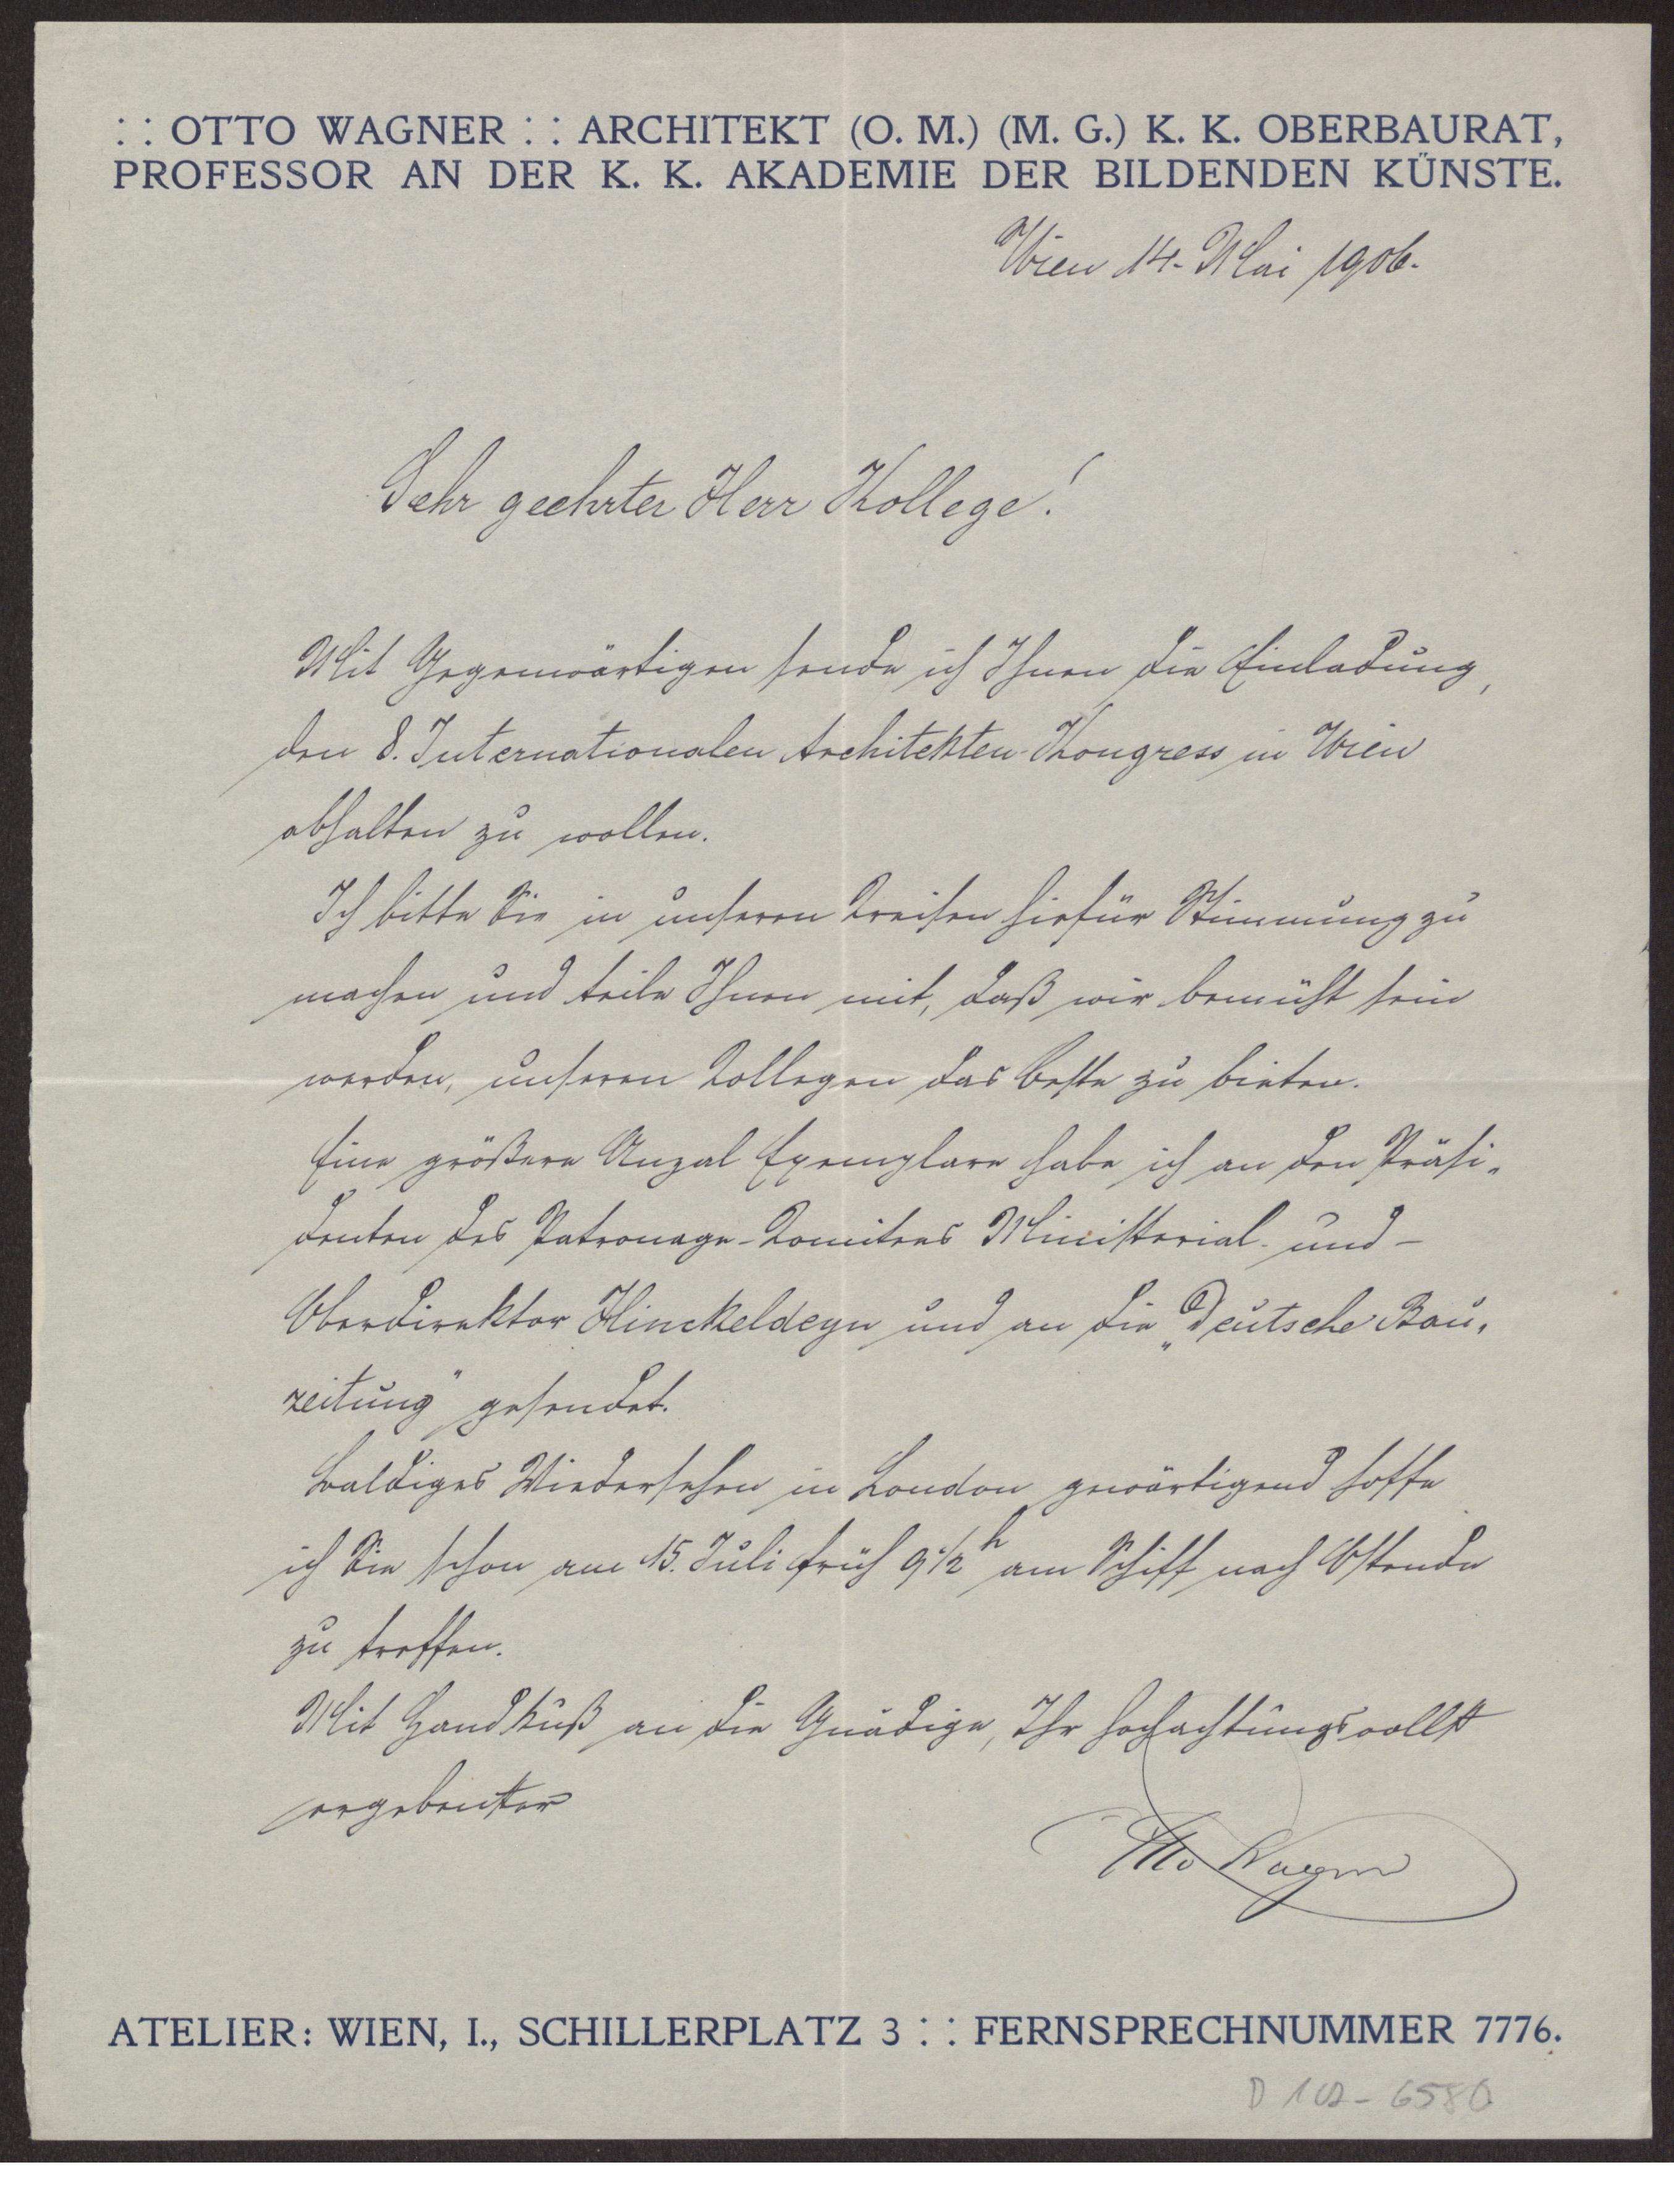 : : OTTO WAGNER : : ARCHITEKT (O. M.) (M. G.) K. K. OBERBAURAT,
PROFESSOR AN DER K. K. AKADEMIE DER BILDENDEN KÜNSTE.
Wien 14. Mai 1906.
Sehr geehrter Herr Kollege!
Mit Gegenwärtigen sende ich Ihnen die Einladung,
den 8. Internationalen Architekten-Kongress in Wien
abhalten zu wollen.
Ich bitte Sie in unseren Kreisen hiefür Stimmung zu
machen und teile Ihnen mit, daß wir bemüht sein
werden, unseren Kollegen das Beste zu bieten.
Eine größere Anzal Exemplare habe ich an den Präsi-
denten des Patronage-Komitees Ministerial- und -
Oberdirektor Hinckeldeyn und an die „Deutsche Bau-
zeitung" gesendet.
Baldiges Wiedersehen in London gewärtigend hoffe
ich Sie schon am 15. Juli früh 9 1/2 h am Schiff nach Ostende
zu treffen.
Mit Handkuß an die Gnädige, Ihr hochachtungsvollst
ergebenster
Otto Wagner
ATELIER: WIEN, I., SCHILLERPLATZ 3 : : FERNSPRECHNUMMER 7776.
6580